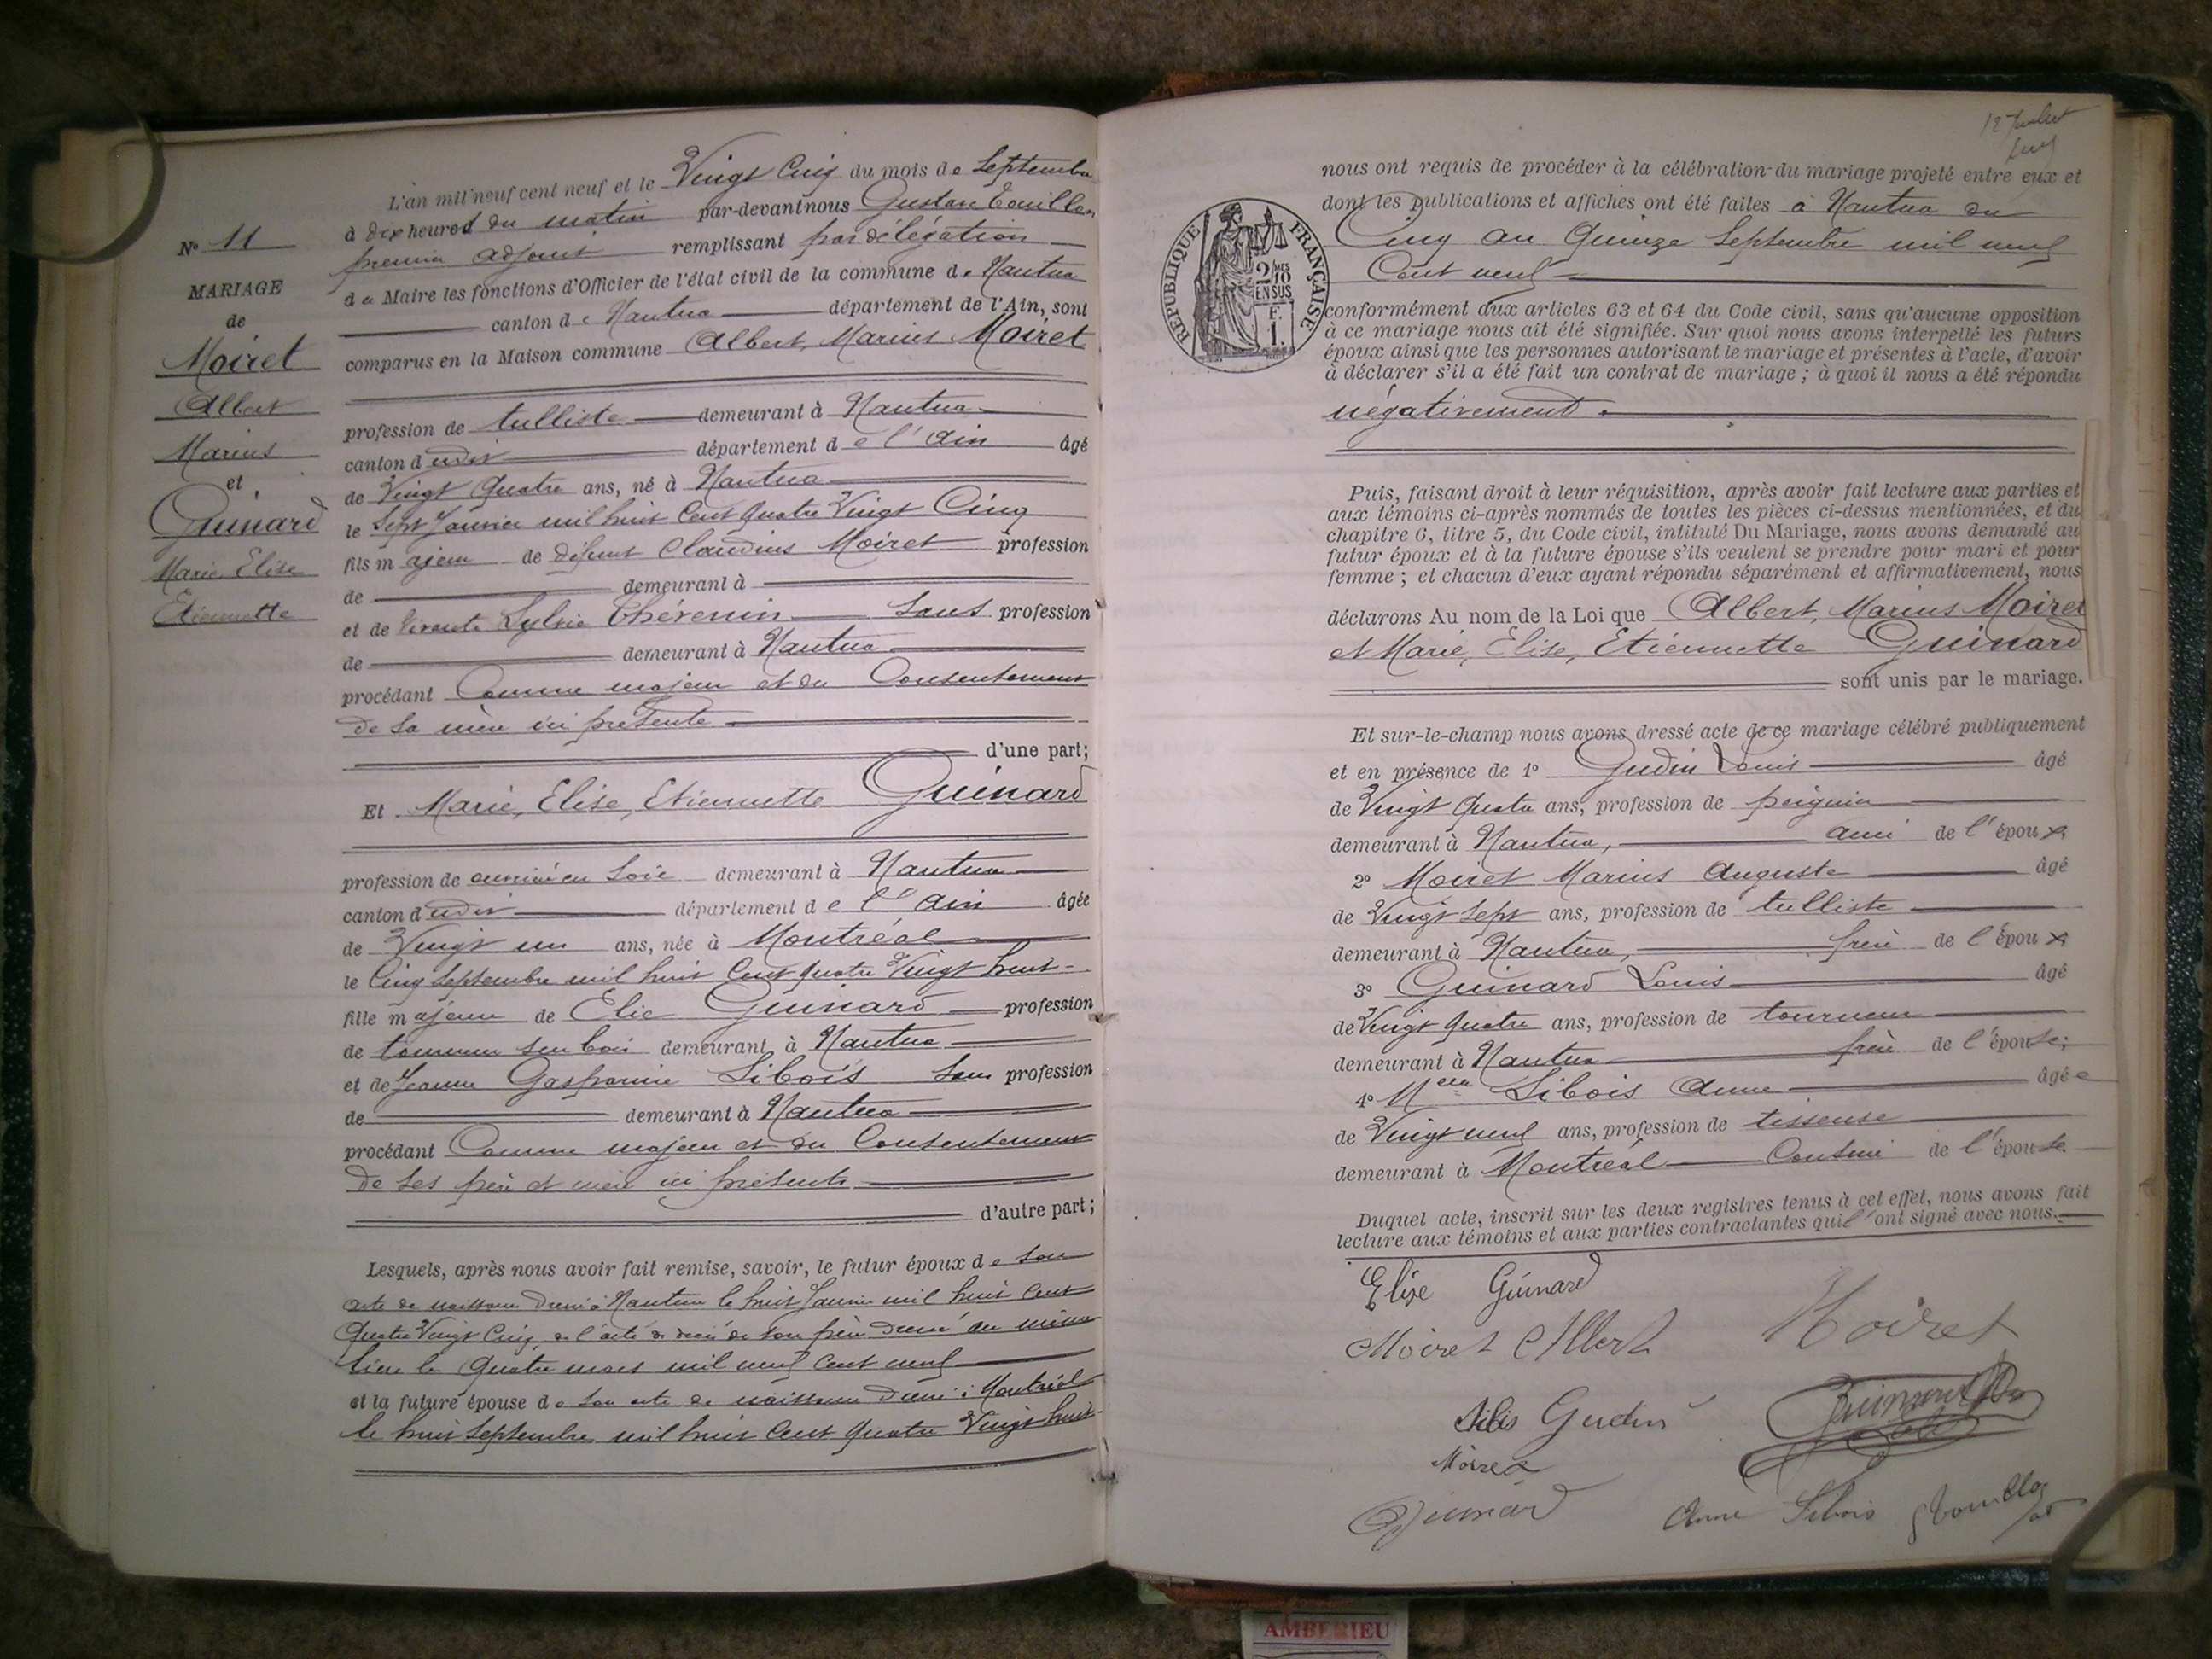 L'an mil neuf cent neuf et le Vingt Cinq du mois de Septembre
à dix heures du matin par-devant nous Gustave
premier adjoint remplissant par délégation
de Maire les fonctions d'Officier de l'état civil de la commune de Nantua
canton de Nantua département de l'Ain, sont
comparus en la Maison commune Albert, Marius Moiret
N° 11
MARIAGE
de
Moiret
Albert
Marius
et
Guinard
Marie Elise
Etiennette
profession de tulliste demeurant à Nantua
canton dudit département de l'Ain âgé
de Vingt quatre ans, né à Nantua
le Sept Janvier mil huit Cent quatre Vingt Cinq
fils majeur de défunt Claudius Moiret profession
de demeurant à
et de vivante Sylvie Thévenin Sans profession
de demeurant à Nantua
procédant Comme majeur et du Consentement
de sa mère ici présente
d'une part;
Et Marie, Elise, Etiennette Guinard
profession de ouvrière en Soie demeurant à Nantua
canton dudit département de l'Ain âgée
de Vingt un ans, née à Montréal
le Cinq Septembre mil huit Cent quatre Vingt huit
fille majeure de Elie Guinard profession
de tourneur sur bois demeurant à Nantua
et de Jeanne Gasparine Sibois Sans profession
de demeurant à Nantua
procédant Comme majeure et du Consentement
de ses père et mère ici présents
d'autre part;
Lesquels, après nous avoir fait remise, savoir, le futur époux de son
acte de naissance dressé à Nantua le huit Janvier mil huit Cent
quatre Vingt Cinq, de l'acte de décès de son père dressé au même
lieu le quatre mars mil neuf Cent neuf
et la future épouse de son acte de naissance dressé à Montréal
le huit Septembre mil huit Cent quatre Vingt huit
nous ont requis de procéder à la célébration du mariage projeté entre eux et
dont les publications et affiches ont été faites à Nantua du
Cinq au Quinze Septembre mil neuf
Cent neuf
RÉPUBLIQUE FRANÇAISE
2/10MES
EN SUS
F.
1.
conformément aux articles 63 et 64 du Code civil, sans qu'aucune opposition
à ce mariage nous ait été signifiée. Sur quoi nous avons interpellé les futurs
époux ainsi que les personnes autorisant le mariage et présentes à l'acte, d'avoir
à déclarer s'il a été fait un contrat de mariage ; à quoi il nous a été répondu
négativement.
Puis, faisant droit à leur réquisition, après avoir fait lecture aux parties et
aux témoins ci-après nommés de toutes les pièces ci-dessus mentionnées, et du
chapitre 6, titre 5, du Code civil, intitulé Du Mariage, nous avons demandé au
futur époux et à la future épouse s'ils veulent se prendre pour mari et pour
femme ; et chacun d'eux ayant répondu séparément et affirmativement, nous
déclarons Au nom de la Loi que Albert, Marius Moiret
et Marie, Elise, Etiennette Guinard
sont unis par le mariage.
Et sur-le-champ nous avons dressé acte de ce mariage célébré publiquement
et en présence de 1° Gudin Louis âgé
de Vingt quatre ans, profession de peignier
demeurant à Nantua, ami de l'époux
2° Moiret Marius Auguste âgé
de Vingt sept ans, profession de tulliste
demeurant à Nantua, frère de l'époux
3° Guinard Louis âgé
de Vingt quatre ans, profession de tourneur
demeurant à Nantua frère de l'épouse;
4° Melle Sibois Anne âgée
de Vingt neuf ans, profession de tisseuse
demeurant à Montréal Cousine de l'épouse
Duquel acte, inscrit sur les deux registres tenus à cet effet, nous avons fait
lecture aux témoins et aux parties contractantes qui l'ont signé avec nous.
Elise Guinard
Moiret Albert Moiret
Gudin
Moiret
Guinard
Anne Sibois
AMBERIEU